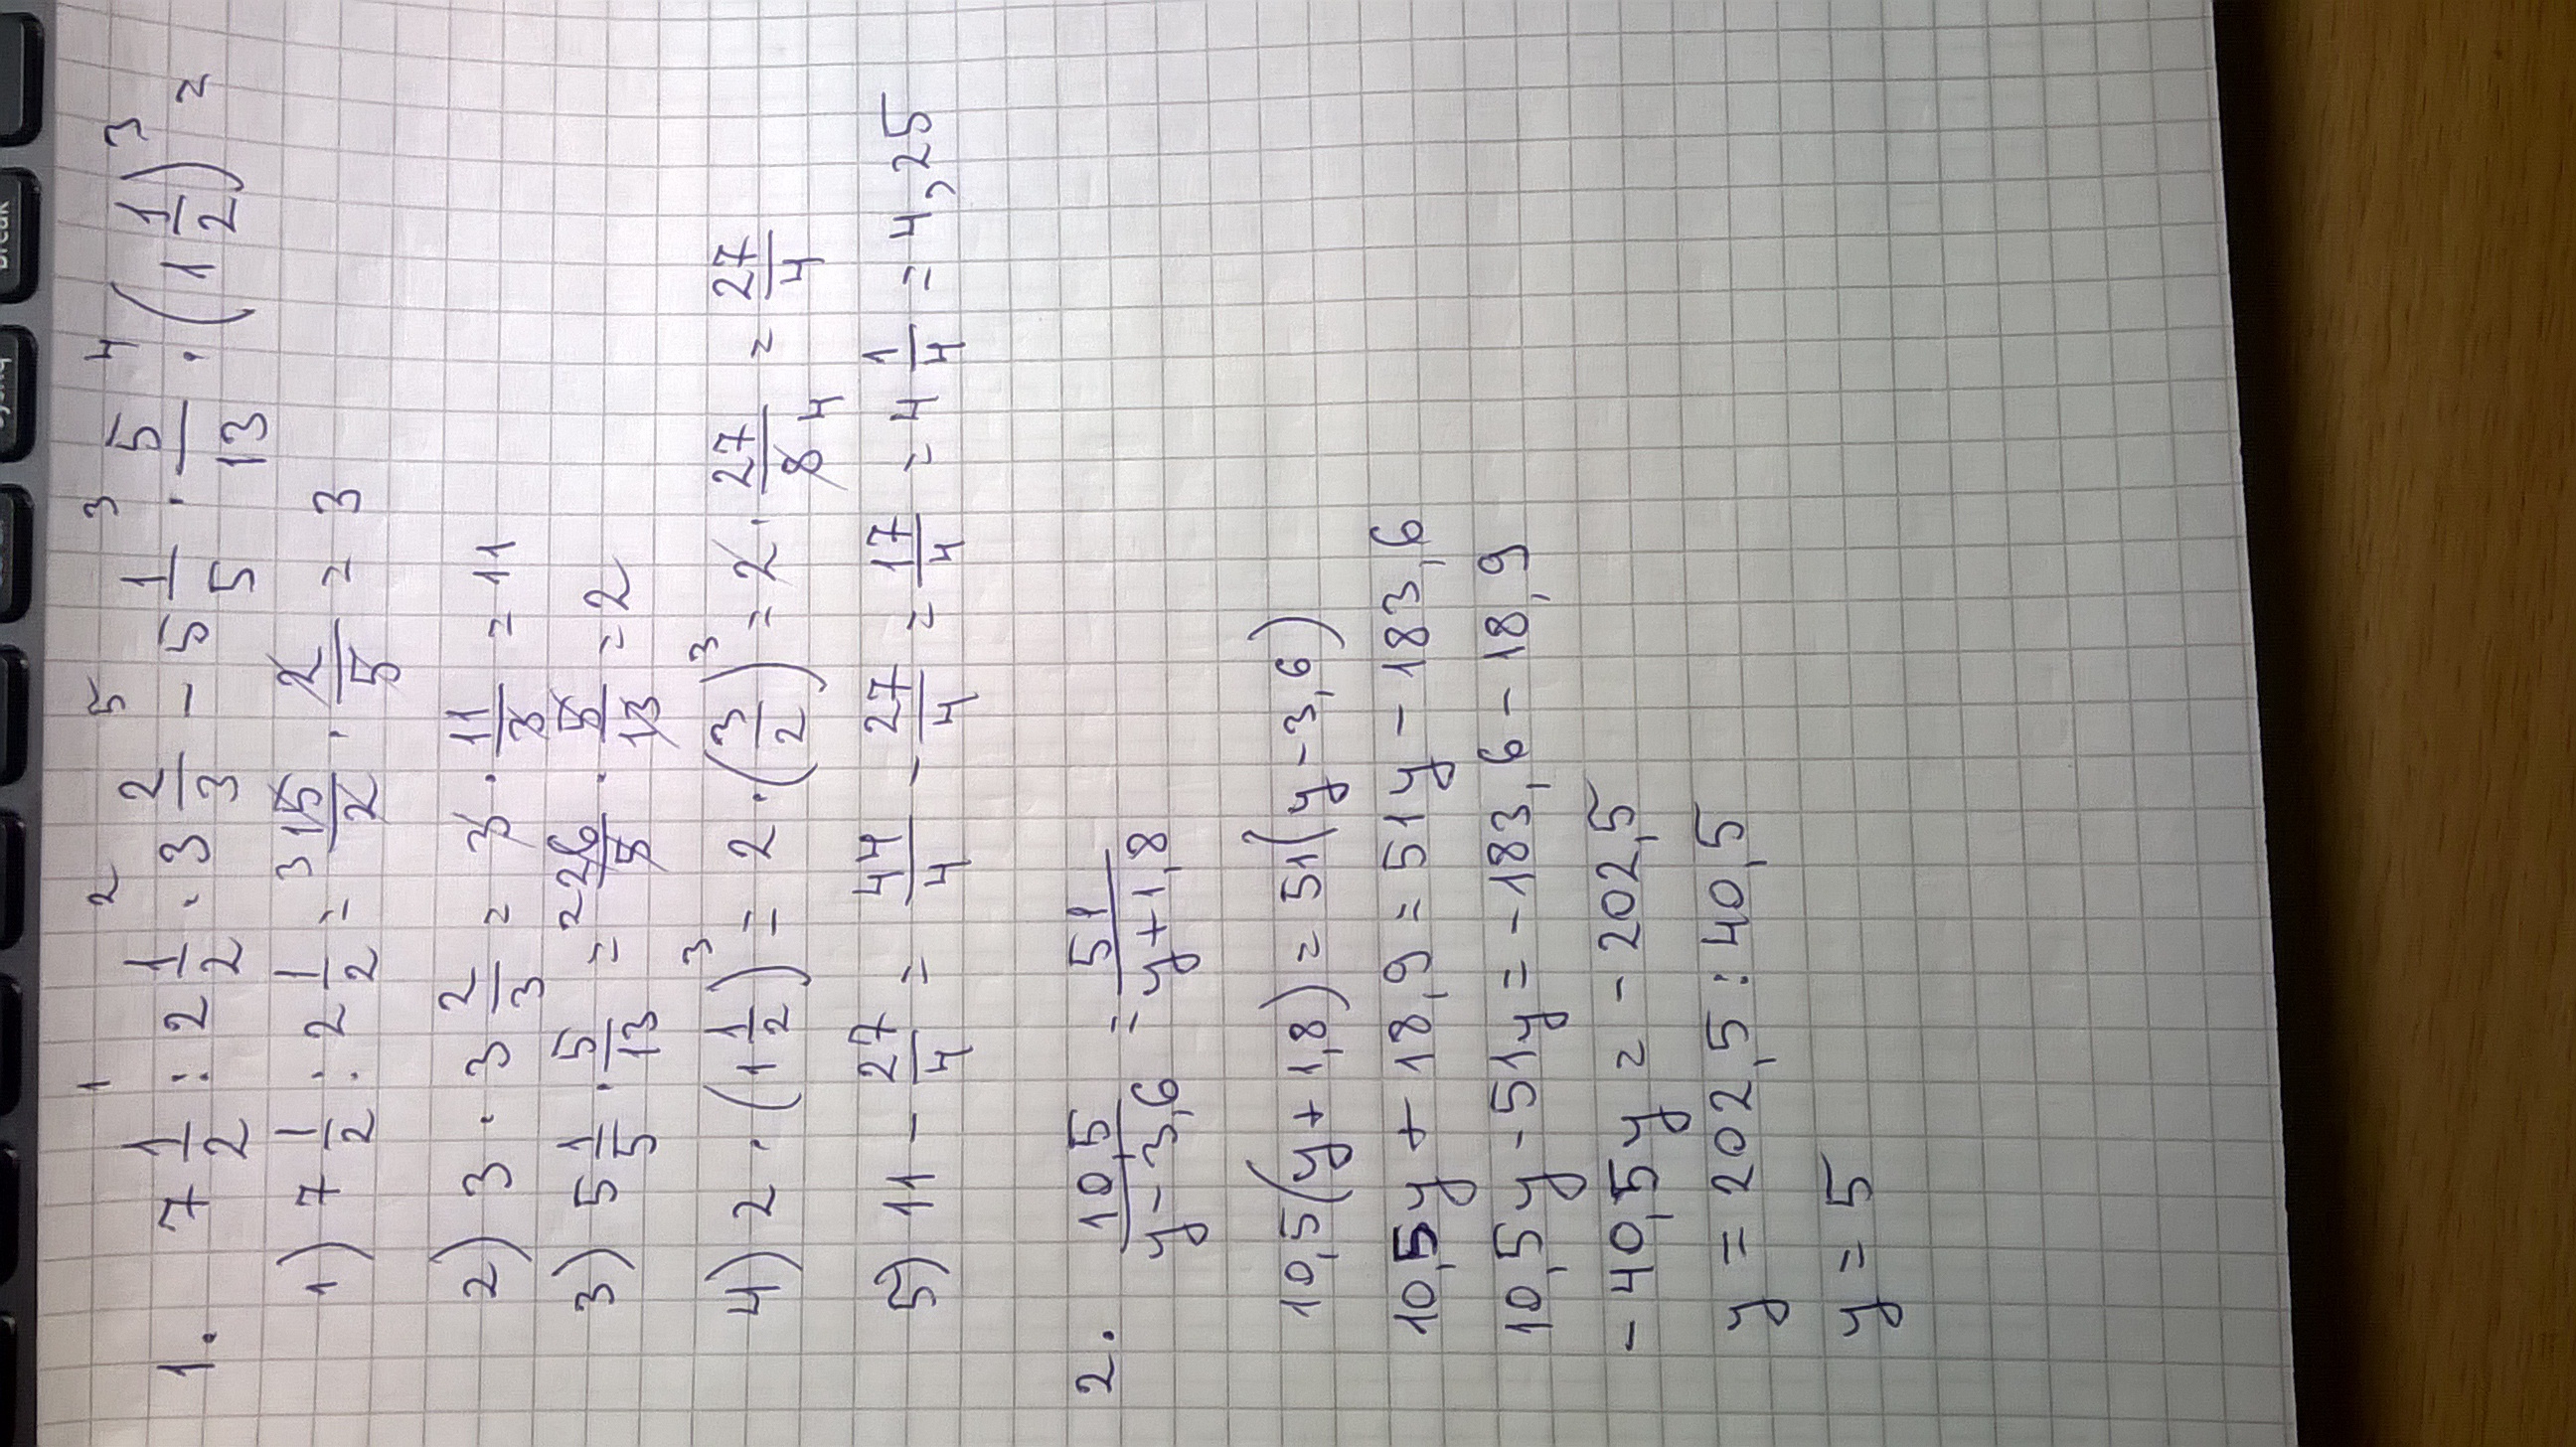 1 2 5 3 4
1. 7 1/2 : 2 1/2 · 3 2/3 - 5 1/5 · 5/13 · (1 1/2)³ =
1) 7 1/2 : 2 1/2 = 3 15/2 · 2/5 = 3
2) 3 · 3 2/3 = 3 · 11/3 = 11
3) 5 1/5 · 5/13 = 2 26/5 · 5/13 = 2
4) 2 · (1 1/2)³ = 2 · (3/2)³ = 2 · 27/8 4 = 27/4
5) 11 - 27/4 = 44/4 - 27/4 = 17/4 = 4 1/4 = 4,25
2. 10,5/y-3,6 = 51/y+1,8
10,5(y + 1,8) = 51(y-3,6)
10,5y + 18,9 = 51y - 183,6
10,5y - 51y = -183,6 - 18,9
- 40,5y = - 202,5
y = 202,5 : 40,5
y = 5